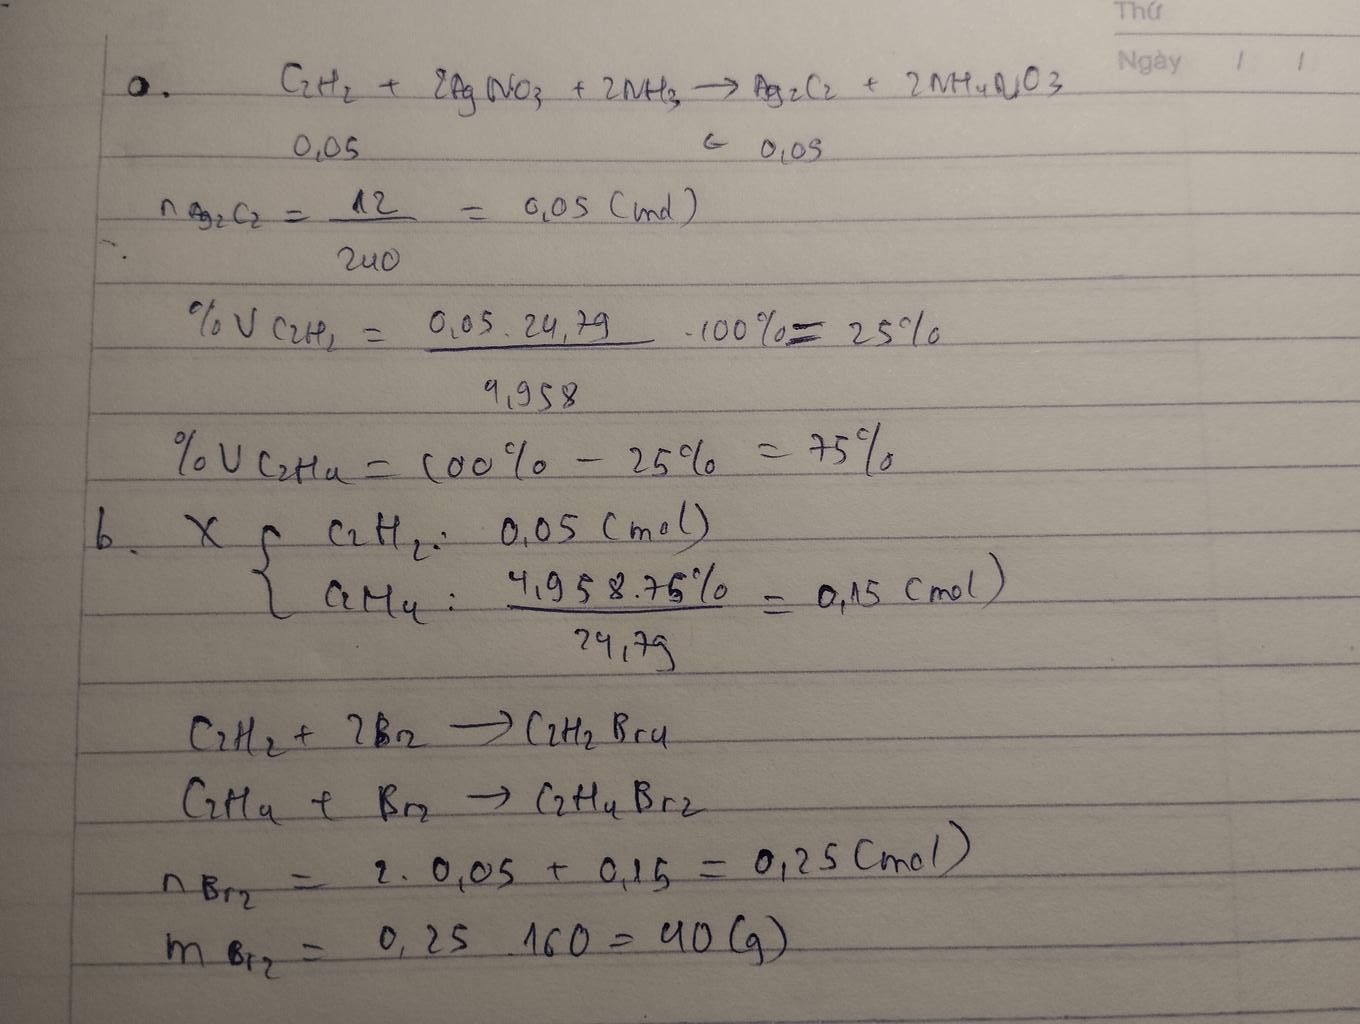 Thứ
Ngày / /
a. C2H2 + 2AgNO3 + 2NH3 → Ag2C2 + 2NH4NO3
0,05 ← 0,05
n Ag2C2 = 12 / 240 = 0,05 (mol)
%V C2H2 = 0,05 . 24,79 / 4,958 . 100% = 25%
%V C2H4 = 100% - 25% = 75%
b. X { C2H2: 0,05 (mol)
C2H4: 4,958.75% / 24,79 = 0,15 (mol)
C2H2 + 2Br2 → C2H2Br4
C2H4 + Br2 → C2H4Br2
n Br2 = 2. 0,05 + 0,15 = 0,25 (mol)
m Br2 = 0,25 160 = 40 (g)